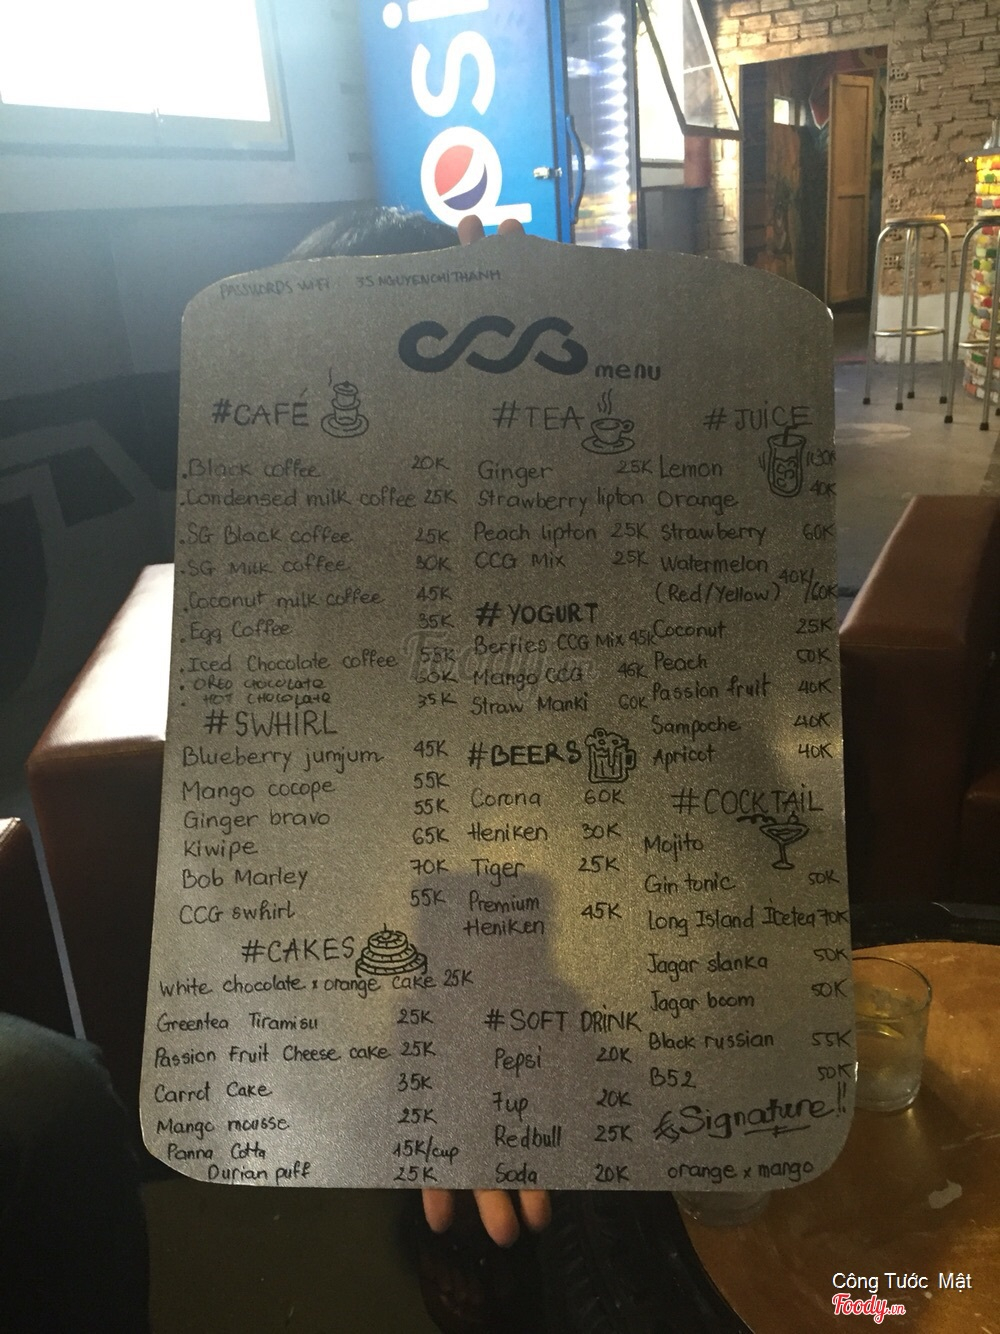 pepsi
PASSWORDS WIFI 35 NGUYENCHITHANH
CCG menu
#CAFÉ
.Black coffee 20K
.Condensed milk coffee 25K
.SG Black coffee 25K
.SG Milk coffee 30K
.Coconut milk coffee 45K
.Egg Coffee 35K
.Iced Chocolate coffee 55K
. OREO CHOCOLATE 50K
. HOT CHOCOLATE 35K
#SWHIRL
Blueberry jumjum 45K
Mango cocope 55K
Ginger bravo 55K
Kiwipe 65K
Bob Marley 70K
CCG swhirl 55K
#CAKES
White chocolate x orange cake 25K
Greentea Tiramisu 25K
Passion Fruit Cheese cake 25K
Carrot Cake 35K
Mango mousse 25K
Panna Cotta 15K/cup
Durian puff 25K
#TEA
Ginger 25K
Strawberry lipton
Peach lipton 25K
CCG Mix 25K
#YOGURT
Berries CCG Mix 45K
Mango CCG 45K
Straw Manki 60K
#BEERS
Corona 60K
Heniken 30K
Tiger 25K
Premium
Heniken 45K
#SOFT DRINK
Pepsi 20K
7up 20K
Redbull 25K
Soda 20K
#JUICE
Lemon 30K
Orange 40K
Strawberry 60K
Watermelon
(Red/Yellow) 40K/60K
Coconut 25K
Peach 50K
Passion fruit 40K
Sampoche 40K
Apricot 40K
#COCKTAIL
Mojito
Gin tonic 50K
Long Island Icetea 70K
Jagar slanka 50K
Jagar boom 50K
Black russian 55K
B52 50K
Signature!!
orange x mango
Foody.vn
Công Tước Mật
Foody.vn